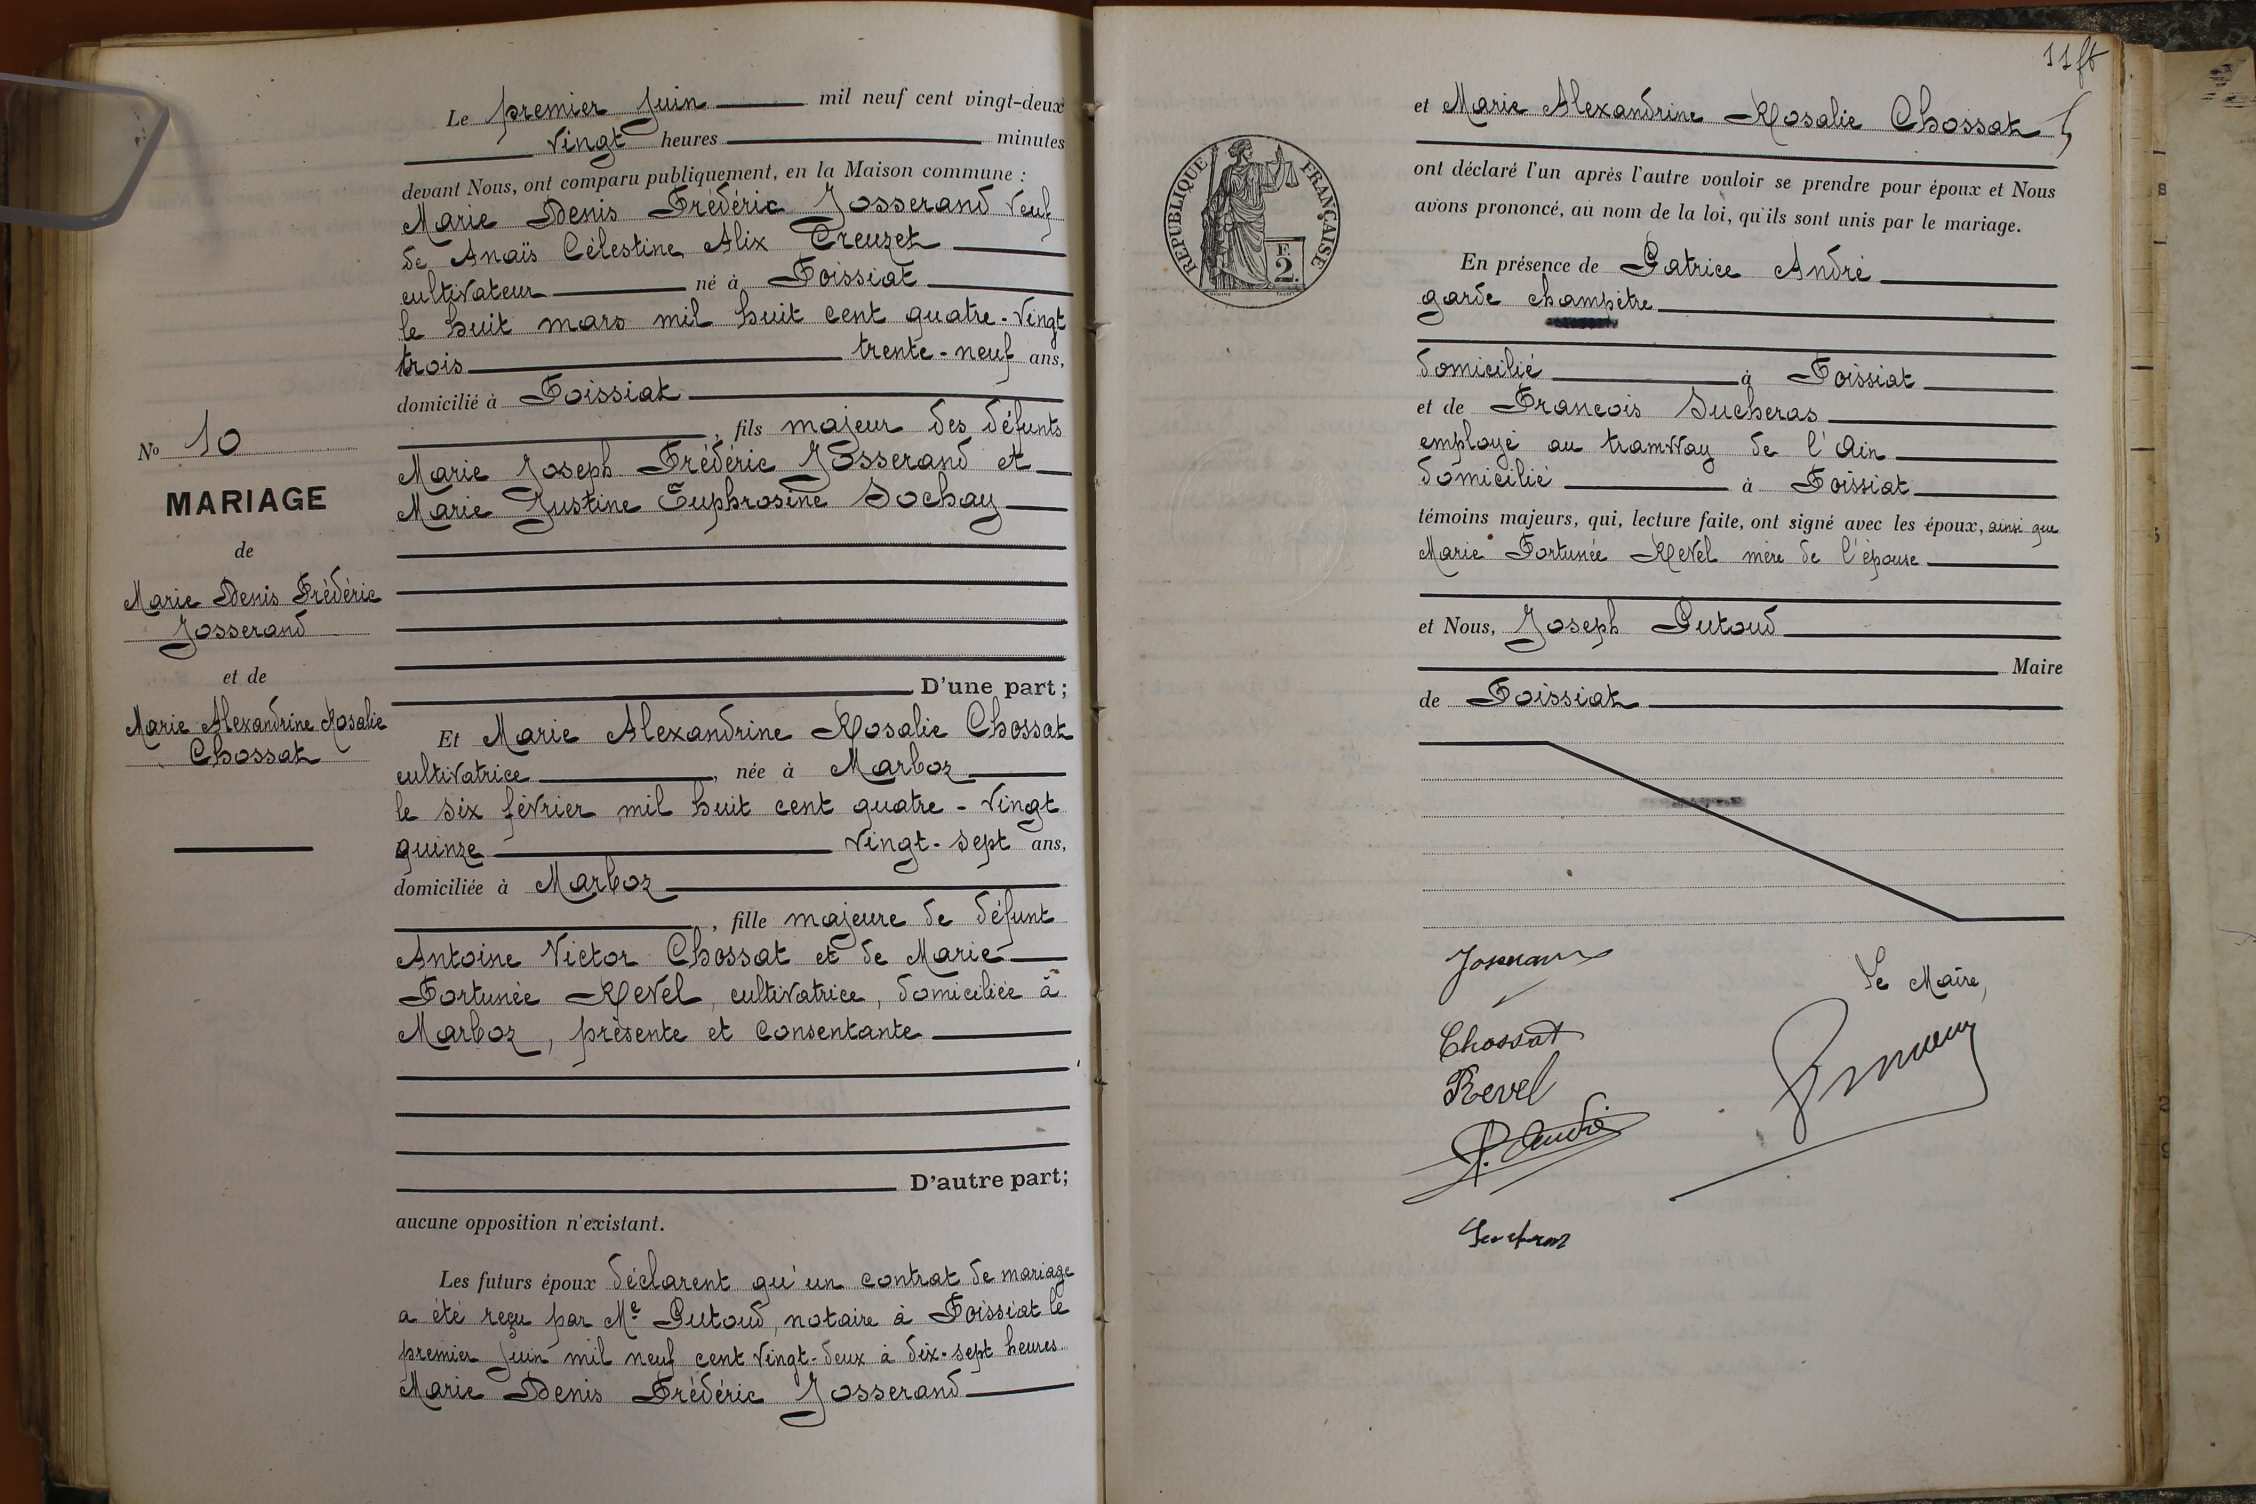 Le premier Juin mil neuf cent vingt-deux
vingt heures minutes
devant Nous, ont comparu publiquement, en la Maison commune :
Marie Denis Frédéric Josserand veuf
de Anaïs Célestine Alix Creuzet
cultivateur né à Foissiat
le huit mars mil huit cent quatre-vingt
trois trente-neuf ans,
domicilié à Foissiat
, fils majeur des défunts
Marie Joseph Frédéric Josserand et
Marie Justine Euphrosine Sochay
D'une part ;
Et Marie Alexandrine Rosalie Chossat
cultivatrice , née à Marboz
le six février mil huit cent quatre-vingt
quinze vingt-sept ans,
domiciliée à Marboz
, fille majeure de défunt
Antoine Victor Chossat et de Marie
Fortunée Revel, cultivatrice, domiciliée à
Marboz, présente et consentante
D'autre part ;
aucune opposition n'existant.
Les futurs époux déclarent qu'un contrat de mariage
a été reçu par Me Putoud, notaire à Foissiat le
premier Juin mil neuf cent vingt-deux à dix-sept heures.
Marie Denis Frédéric Josserand
No 10
MARIAGE
de
Marie Denis Frédéric
Josserand
et de
Marie Alexandrine Rosalie
Chossat
11 ft
et Marie Alexandrine Rosalie Chossat
ont déclaré l'un après l'autre vouloir se prendre pour époux et Nous
avons prononcé, au nom de la loi, qu'ils sont unis par le mariage.
RÉPUBLIQUE FRANÇAISE
F.
2
En présence de Patrice André
garde champêtre
domicilié à Foissiat
et de François Sucheras
employé au tramway de l'Ain
domicilié à Foissiat
témoins majeurs, qui, lecture faite, ont signé avec les époux, ainsi que
Marie Fortunée Revel mère de l'épouse
et Nous, Joseph Putoud
Maire
de Foissiat
Josserand
Le Maire,
Chossat
Revel
P. André
Sucheras